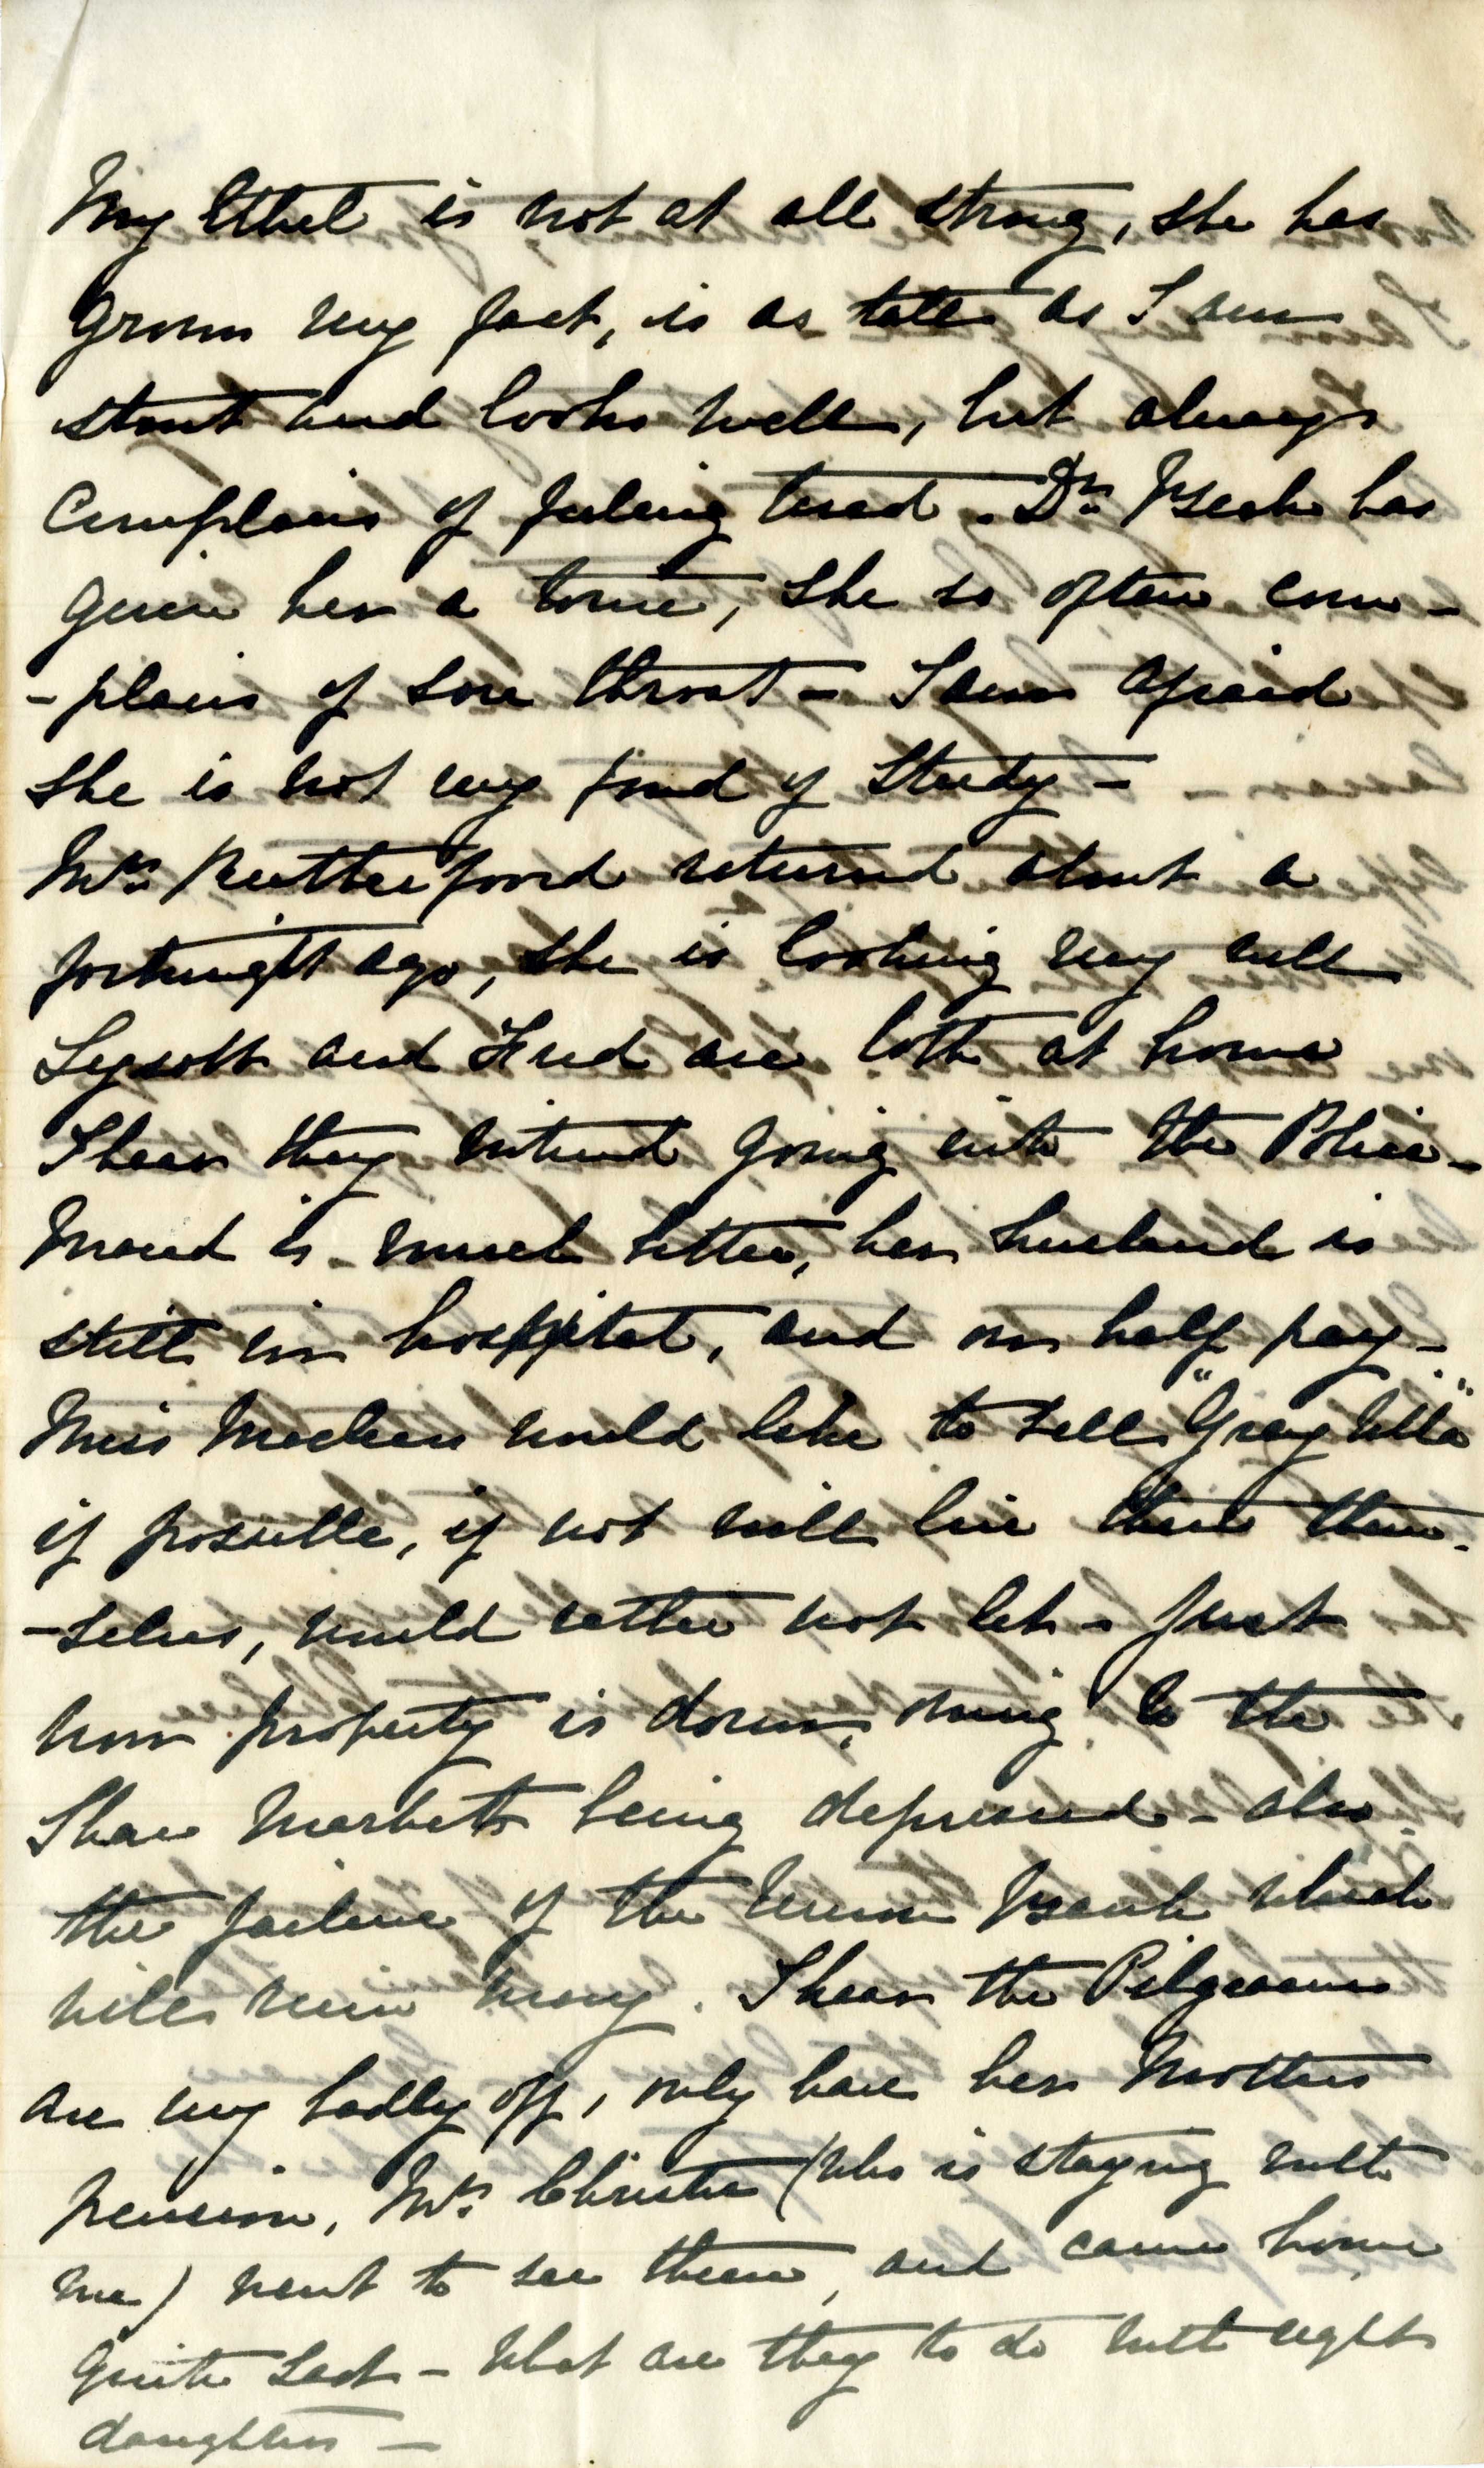 My Ethel is not at all strong, she has
grown very fast, is as tall as I am
stout and looks well, but always
complains of feeling tired. Dr. Beck has
given her a tonic, she so often com-
-plains of sore throat - I am afraid
she is not very fond of study -
Mrs. Rutherfoord returned about a
fortnight ago, she is looking very well
and Fred are both at home
I hear they intend going into the Police -
Maud is much better, her husband is
still in hospital, and on half pay -
Miss Maclear would like to sell "Gray Villa"
if possible, if not will live there them-
-selves, would rather not let - Just
now property is down, owing to the
Share Markets being depressed - also
the failure of the Union Bank which
will ruin many. I hear the Pilgrams
are very badly off, only have her Mothers
pension, Mrs. Christie (who is staying with
me) went to see them, and came home
quite sad - What are they to do with eight
daughters -